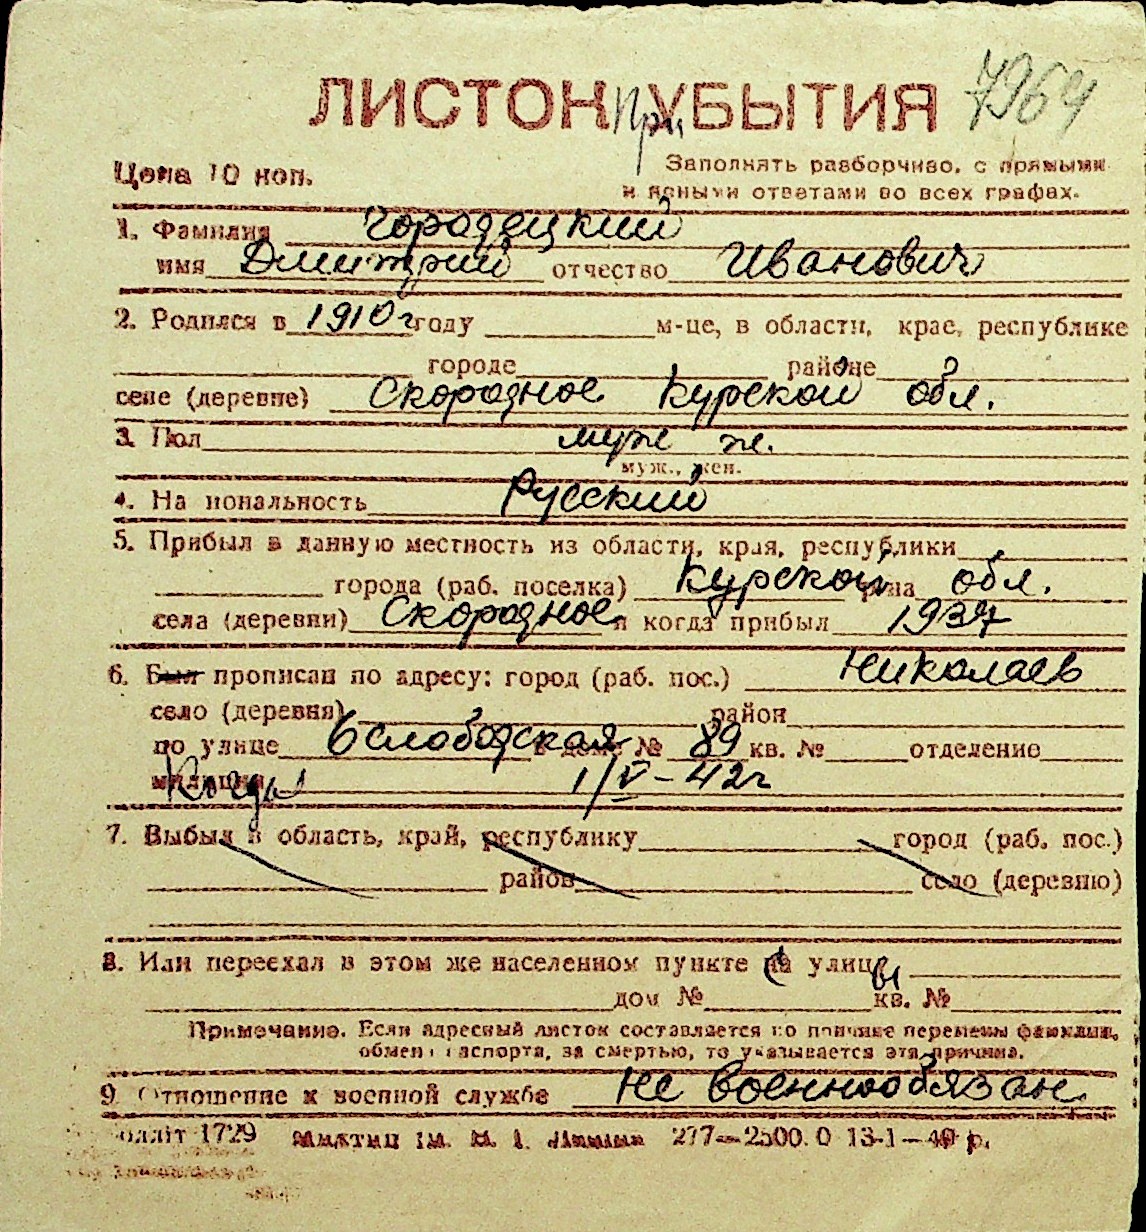 ЛИСТОК При УБЫТИЯ 7964
Цена 10 коп.
Заполнять разборчиво, с прямыми
и ясными ответами во всех графах.
1. Фамилия Городецкий
имя Дмитрий отчество Иванович
2. Родился в 1910 г году м-це, в области, крае, республике
городе районе
селе (деревне) Скородное Курской обл.
3. Пол муж
муж., жен.
4. Национальность Русский
5. Прибыл в данную местность из области, края, республики
города (раб. поселка) Курской р-на обл.
села (деревни) Скородное и когда прибыл 1937
6. Был прописан по адресу: город (раб. пос.) Николаев
село (деревня) район
по улице 6 слободская в доме № 89 кв. № отделение
милиции Когда 1/V-42г
7. Выбыл в область, край, республику город (раб. пос.)
район село (деревню)
8. Или переехал в этом же населенном пункте с улицы
дом № кв. №
Примечание. Если адресный листок составляется по причине перемены фамилии,
обмена паспорта, за смертью, то указывается эта причина.
9. Отношение к военной службе Не военнообязан
1729 277—2500.0 13-1—40 р.